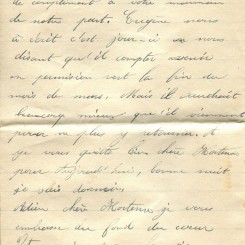 de compliment à votre maman
de notre part. Eugène nous
a écrit c'est jours-ci en nous
disant qu'il compte
en permission vers la fin du
mois de mars. Mais il vaudrait
beaucoup mieux qu'il viennent
pour ne plus y retourner. Et
je vous quitte bien chère Hortense
pour aujourd'hui, bonne nuit
je vais
Adieu chère Hortense je vous
embrasse du fond du coeur